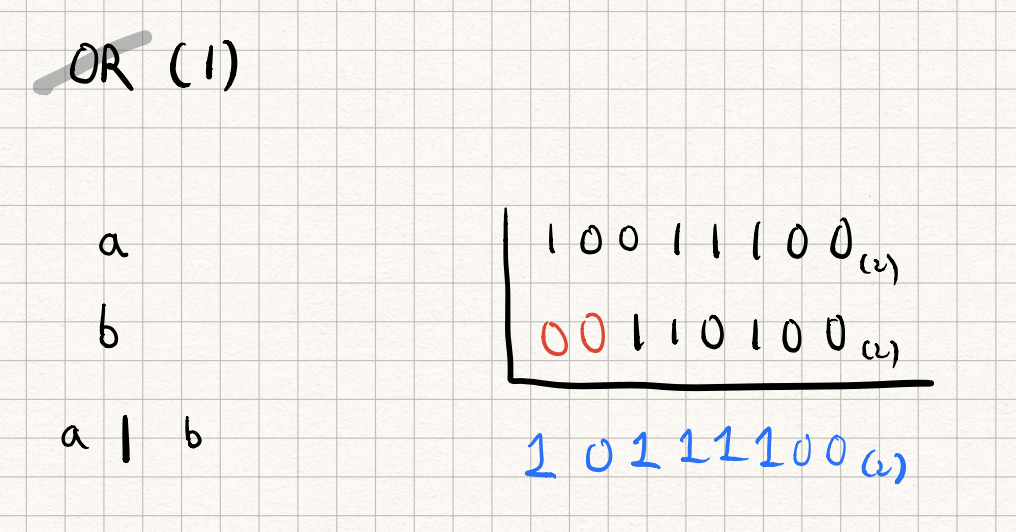 OR (1)
a 10011100(2)
b 00110100(2)
a | b 10111100(2)